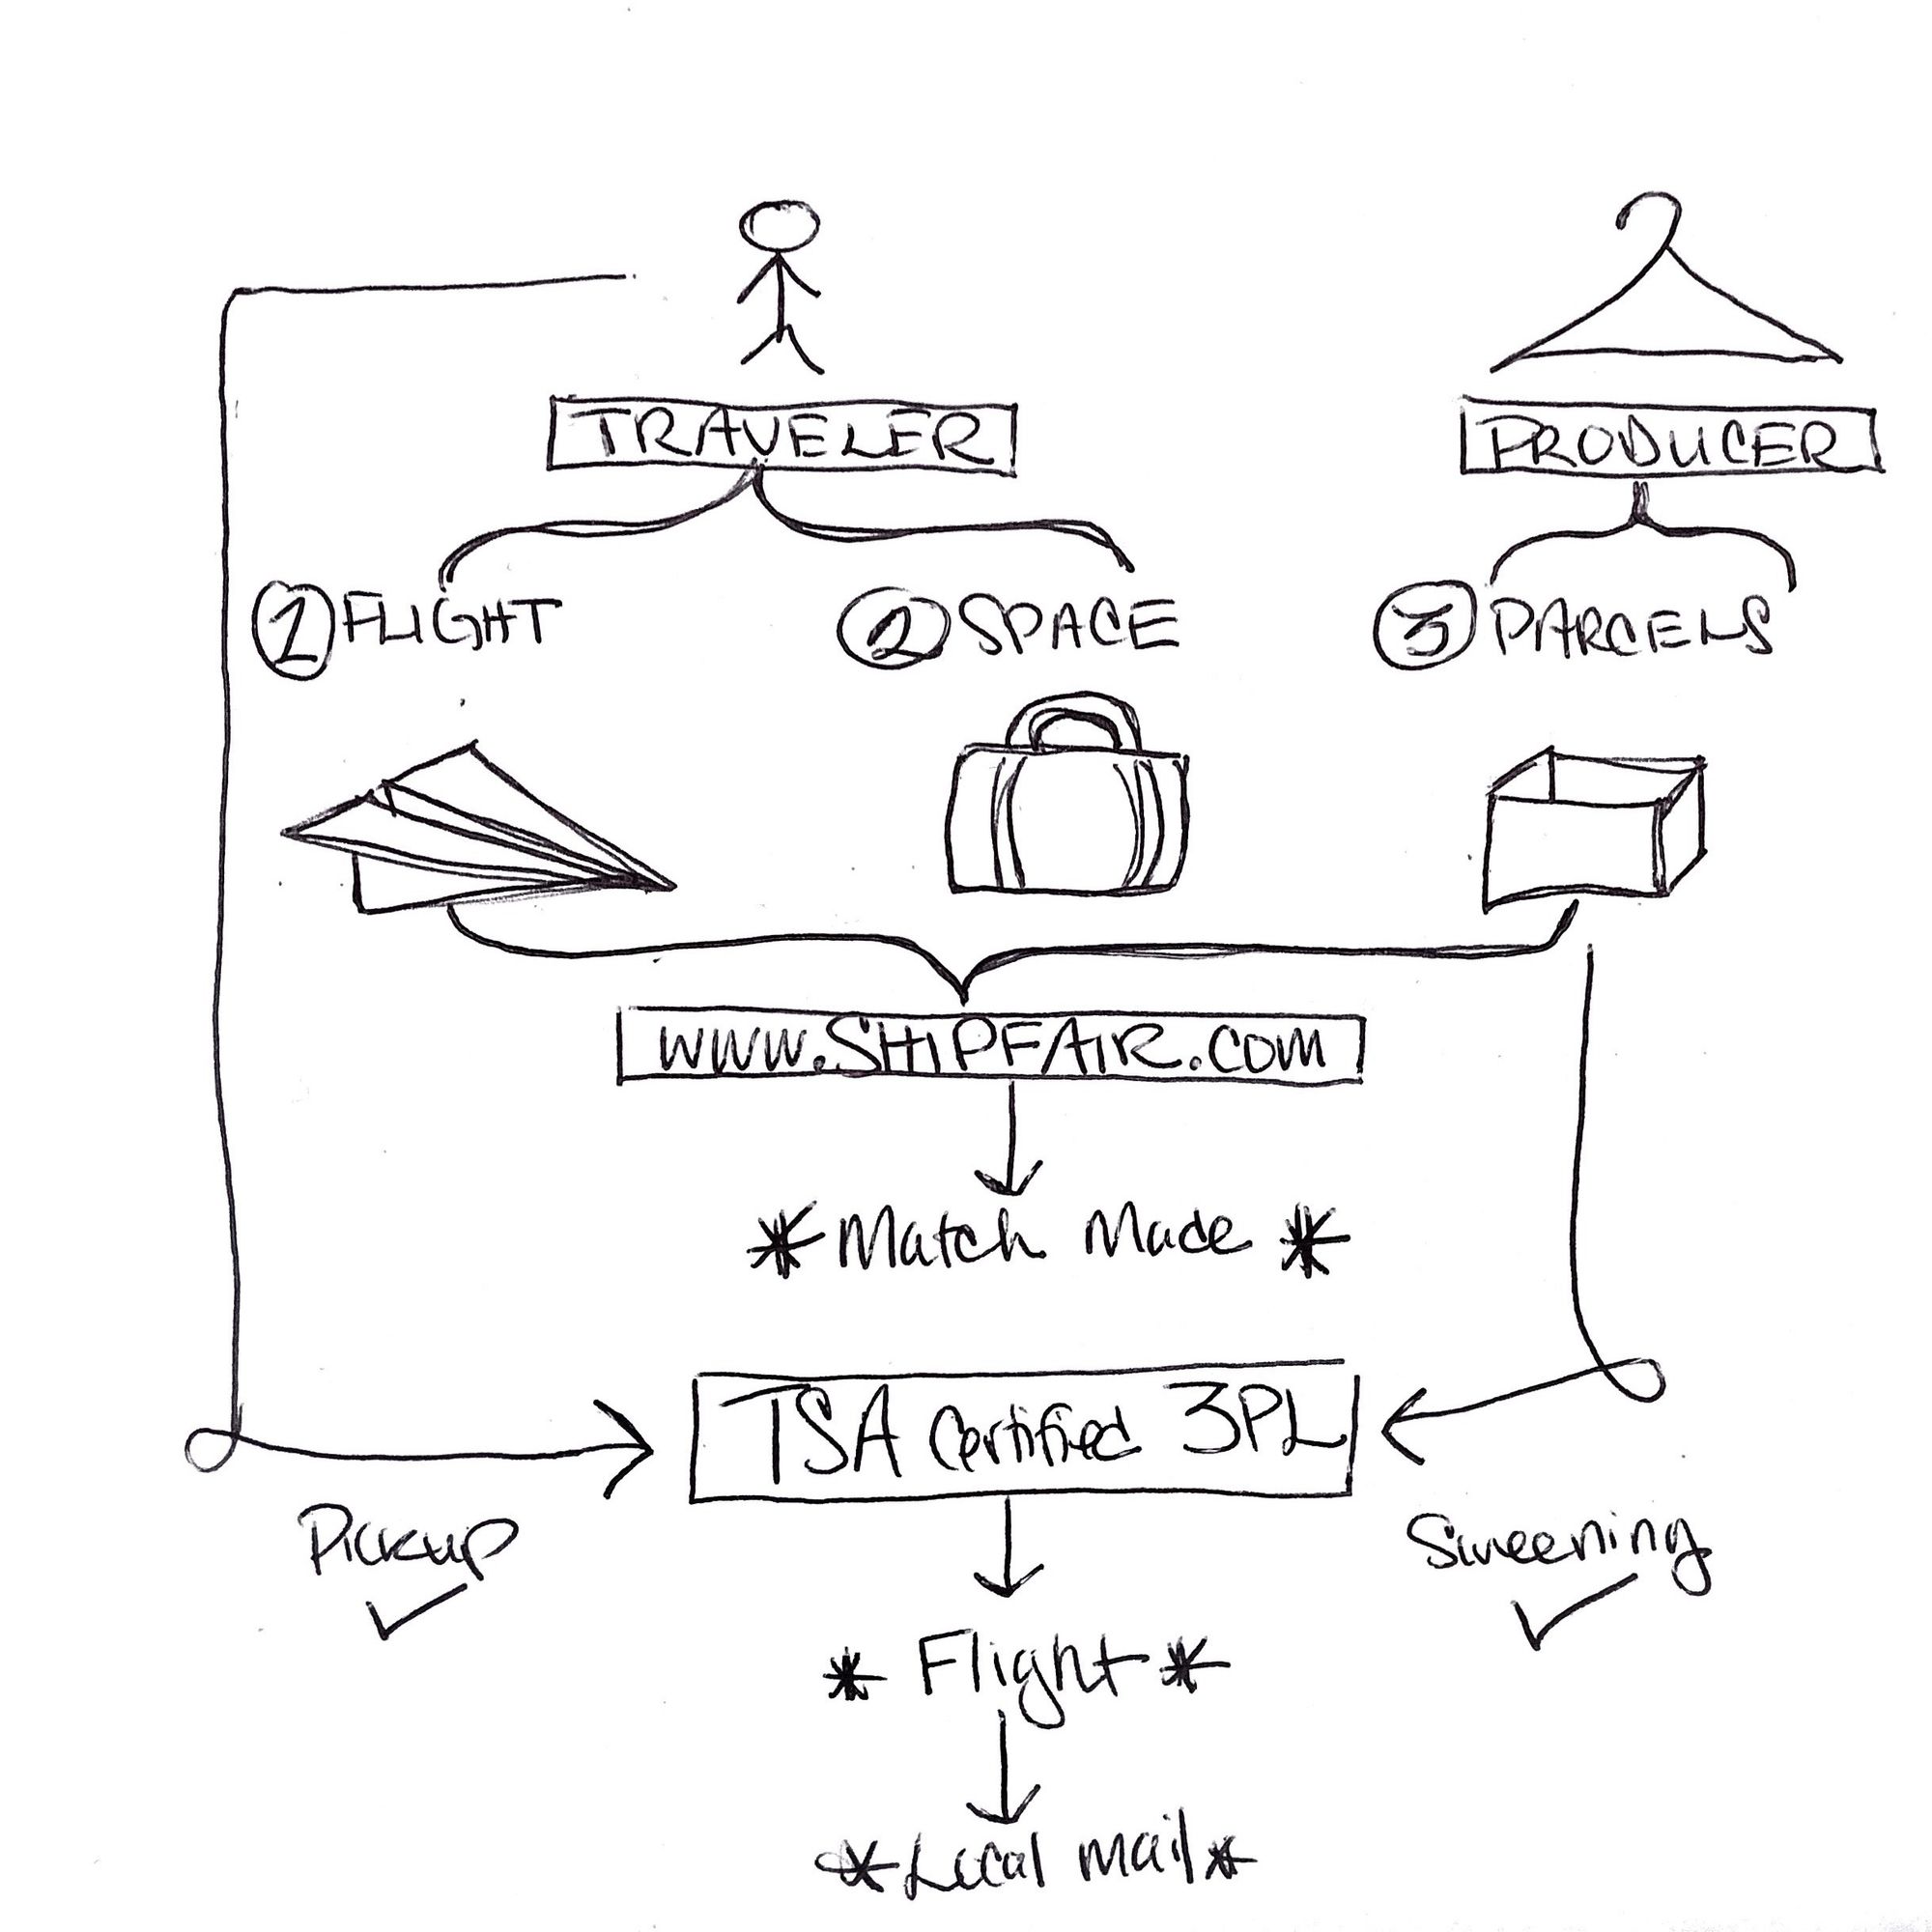 TRAVELER
PRODUCER
1 FLIGHT
2 SPACE
3 PARCELS
WWW.SHIPFAIR.COM
* Match Made *
TSA Certified 3PL
Pickup
Screening
* Flight *
* Local Mail *